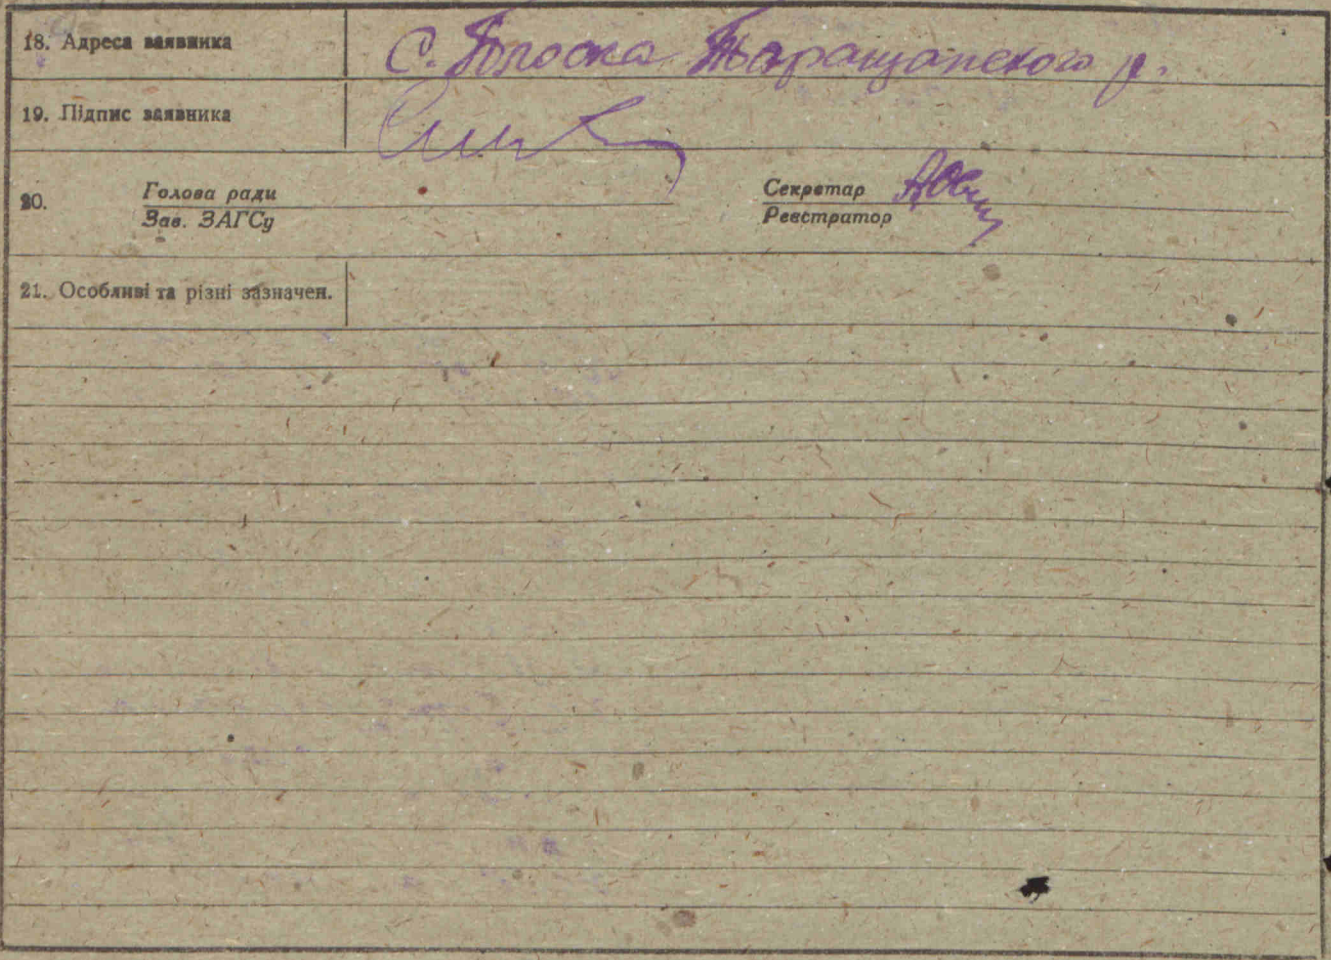 18. Адреса заявника С. Плоска Таращанского р.
19. Підпис заявника
20. Голова ради Секретар
Зав. ЗАГСу Реєстратор
21. Особливі та різні зазначен.